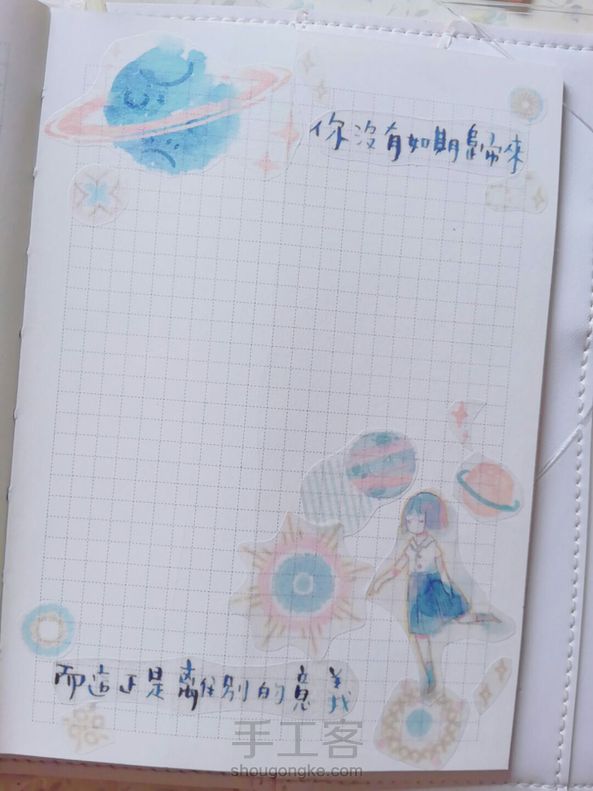 你沒有如期歸來
而這正是離別的意義
手工客
shougongke.com